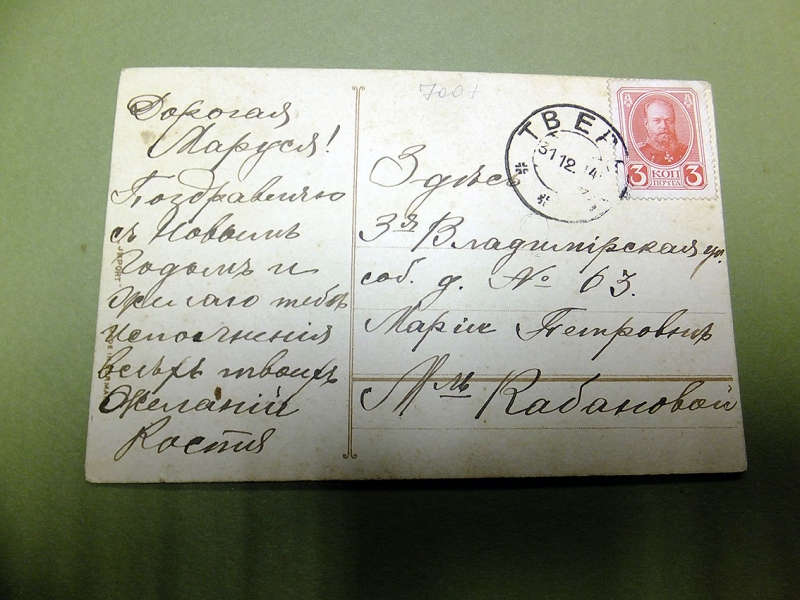 Дорогая
Маруся!
Поздравляю
съ Новымъ
Годомъ и
желаю тебѣ
исполненія
всѣхъ твоихъ
желаній
Костя
700+
ТВЕРЬ
31 12 14
3 КОП 3
ПОЧТА
Здѣсь
3я Владимірская ул.
соб. д. № 63.
Маріи Петровнѣ
Мль Кабановой
IMPORT